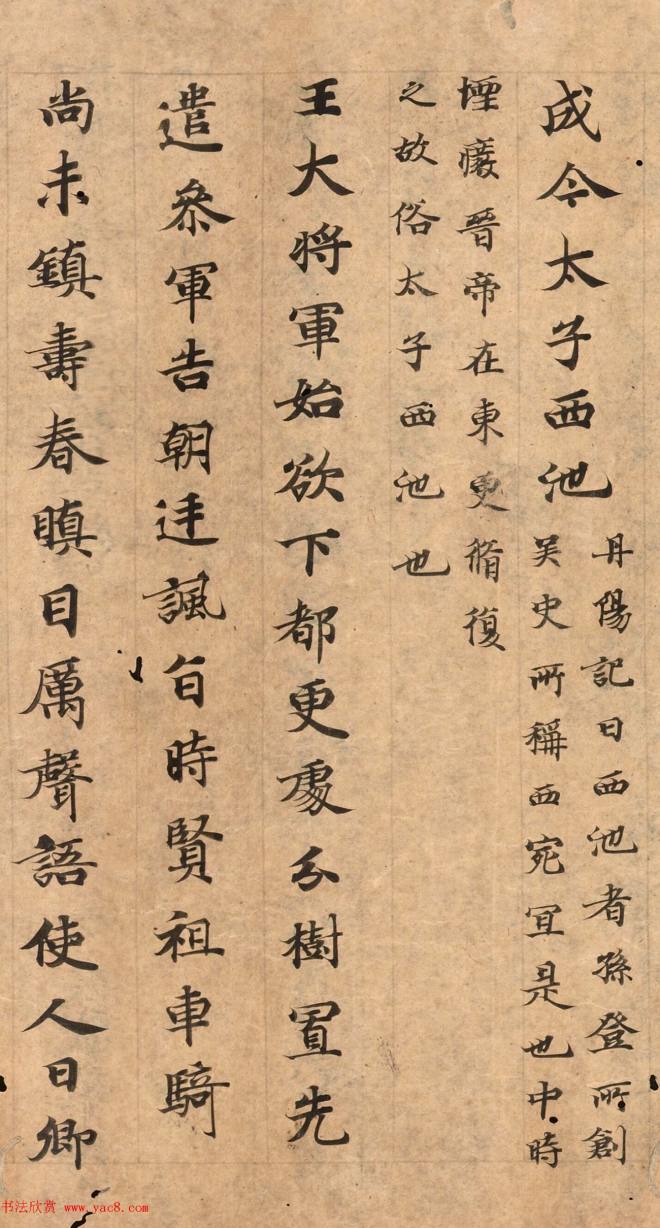 成令太子西池
丹陽記曰西池者孫登所創
吴史所稱西宛冝是也中時
堙癈晉帝在東更脩復
之故俗太子西池也
王大将軍始欲下都更處分樹置先
遣叅軍告朝廷諷旨時賢祖車騎
尚未鎮壽春瞋目厲聲語使人曰卿
书法欣赏 www.yac8.com